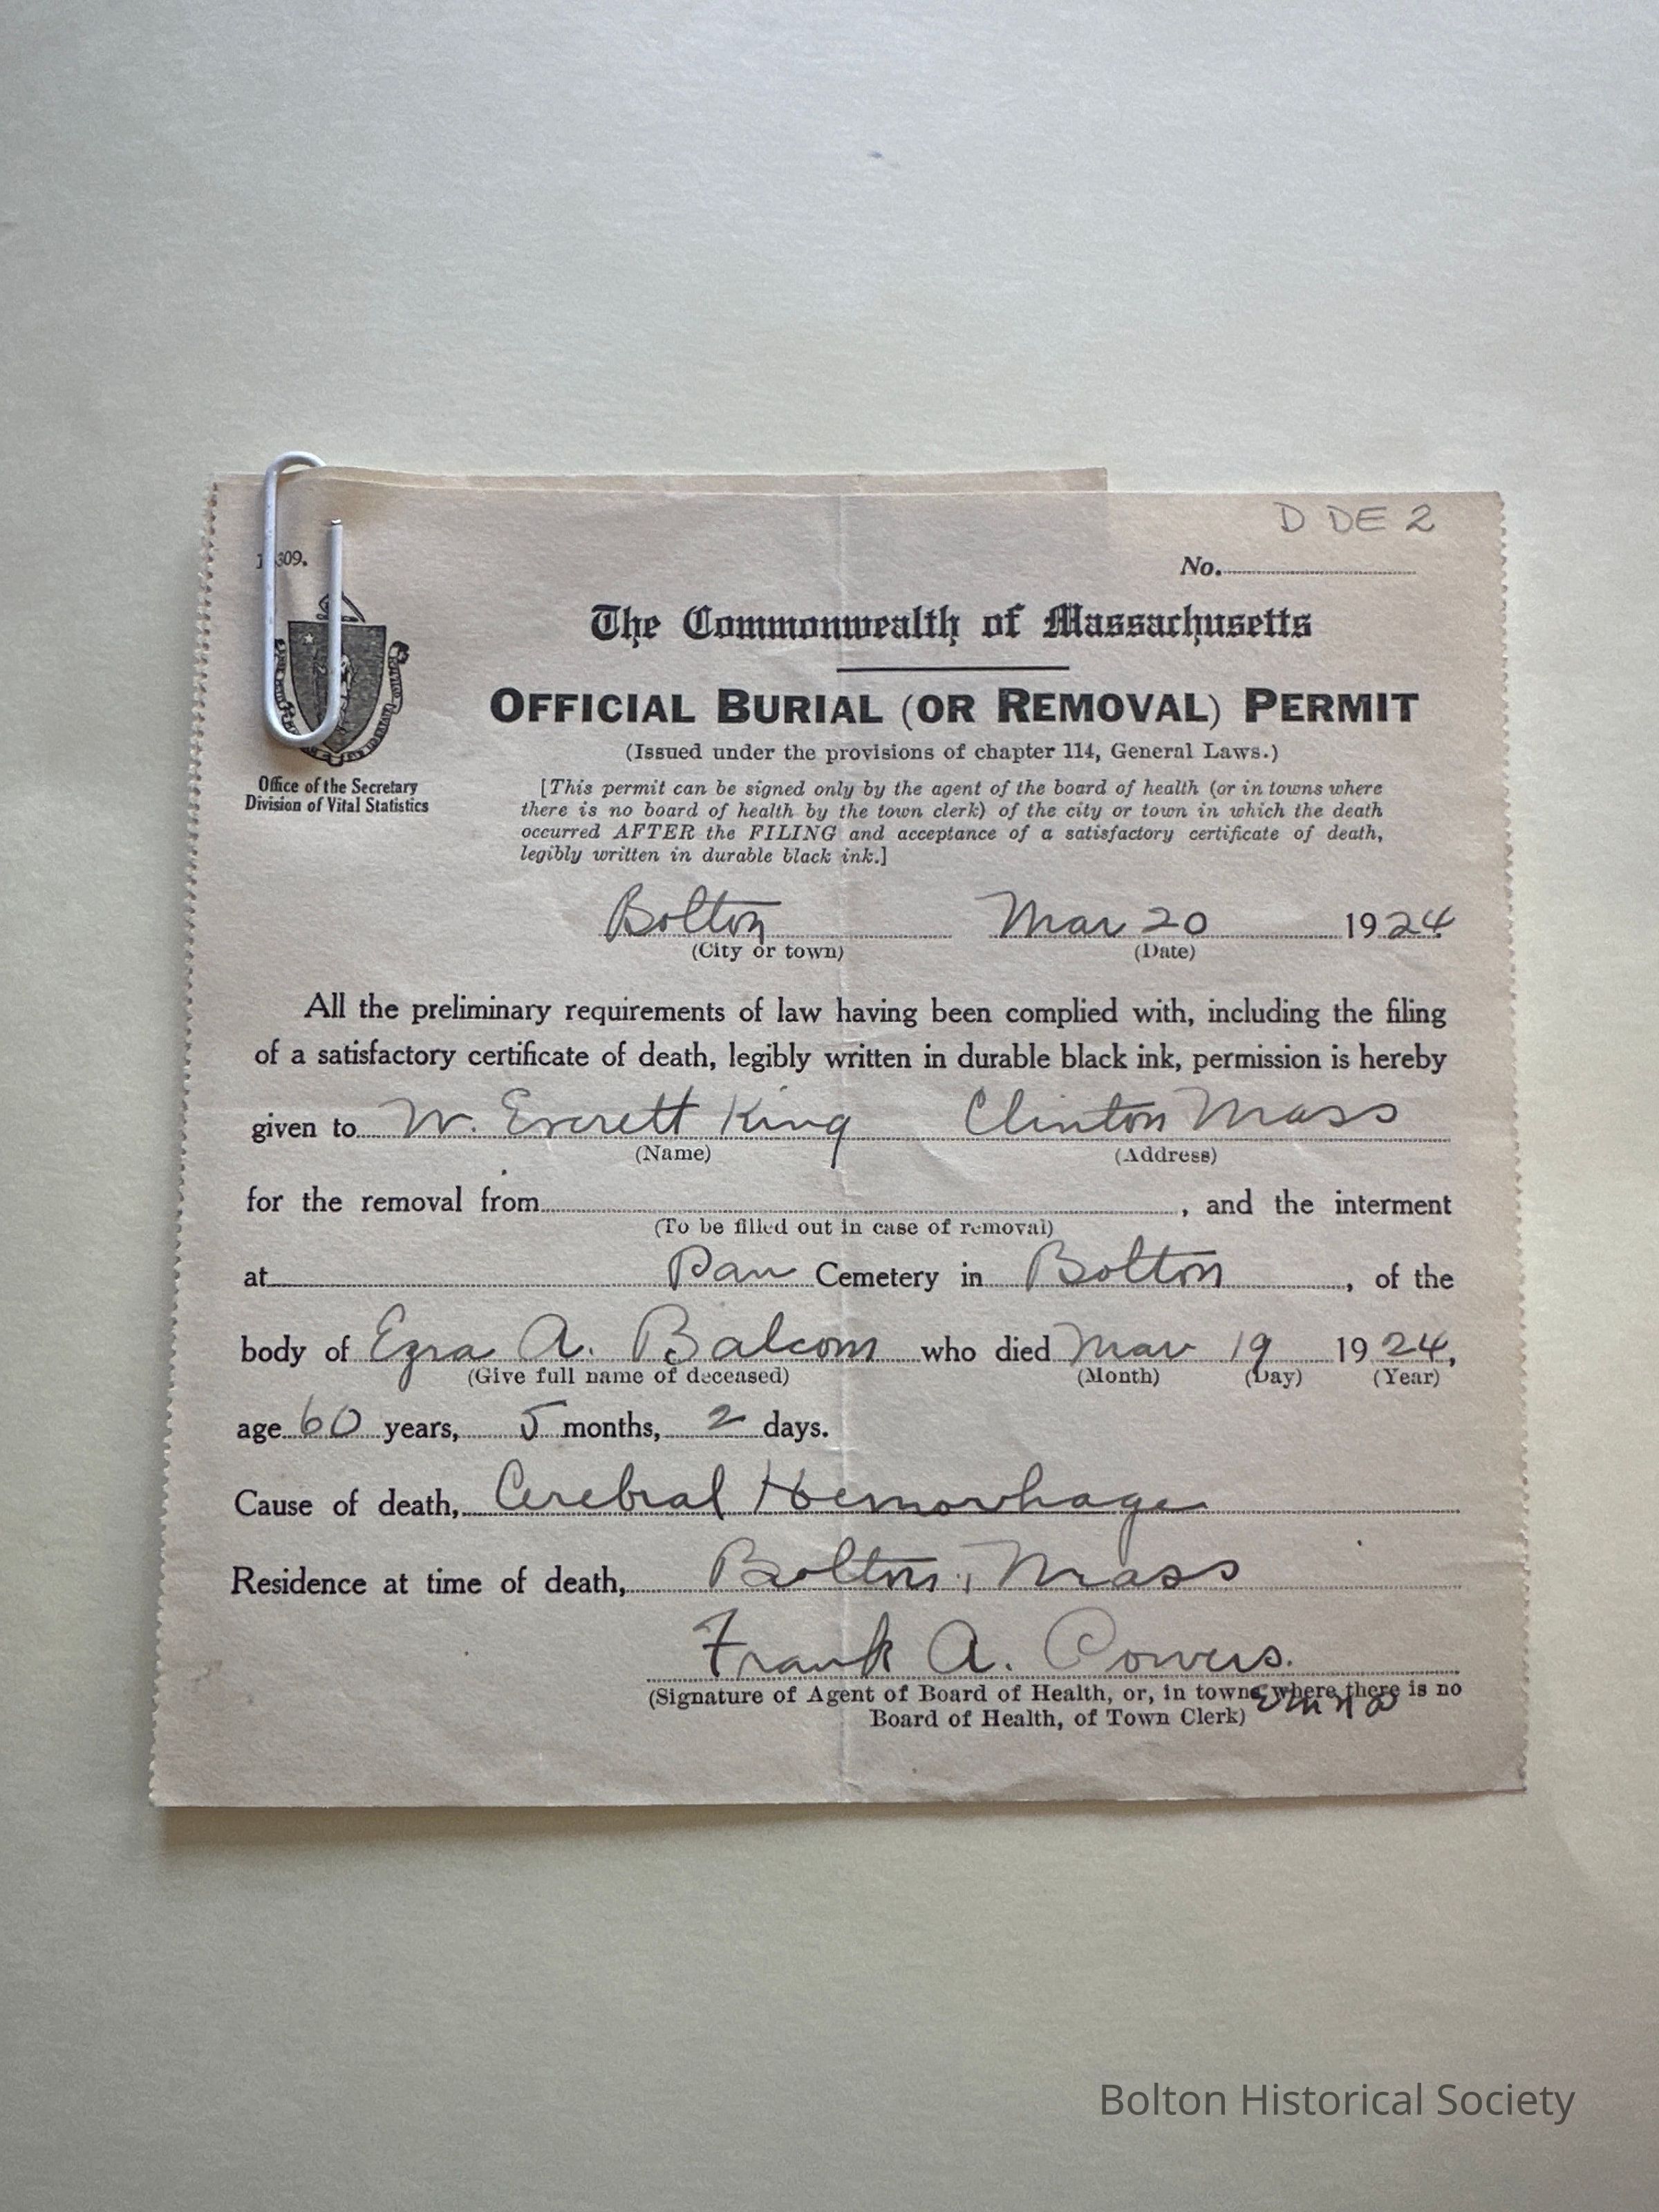 D DE 2
309.
No.
The Commonwealth of Massachusetts
OFFICIAL BURIAL (OR REMOVAL) PERMIT
(Issued under the provisions of chapter 114, General Laws.)
Office of the Secretary
Division of Vital Statistics
[This permit can be signed only by the agent of the board of health (or in towns where
there is no board of health by the town clerk) of the city or town in which the death
occurred AFTER the FILING and acceptance of a satisfactory certificate of death,
legibly written in durable black ink.]
Bolton Mar 20 1924
(City or town) (Date)
All the preliminary requirements of law having been complied with, including the filing
of a satisfactory certificate of death, legibly written in durable black ink, permission is hereby
given to W. Everett King Clinton Mass
(Name) (Address)
for the removal from , and the interment
(To be filled out in case of removal)
at Pan Cemetery in Bolton, of the
body of Ezra A. Balcom who died Mar 19 1924,
(Give full name of deceased) (Month) (Day) (Year)
age 60 years, 5 months, 2 days.
Cause of death, Cerebral Hemorhage
Residence at time of death, Bolton, Mass
Frank A. Powers.
(Signature of Agent of Board of Health, or, in towns where there is no
Board of Health, of Town Clerk)
Bolton Historical Society